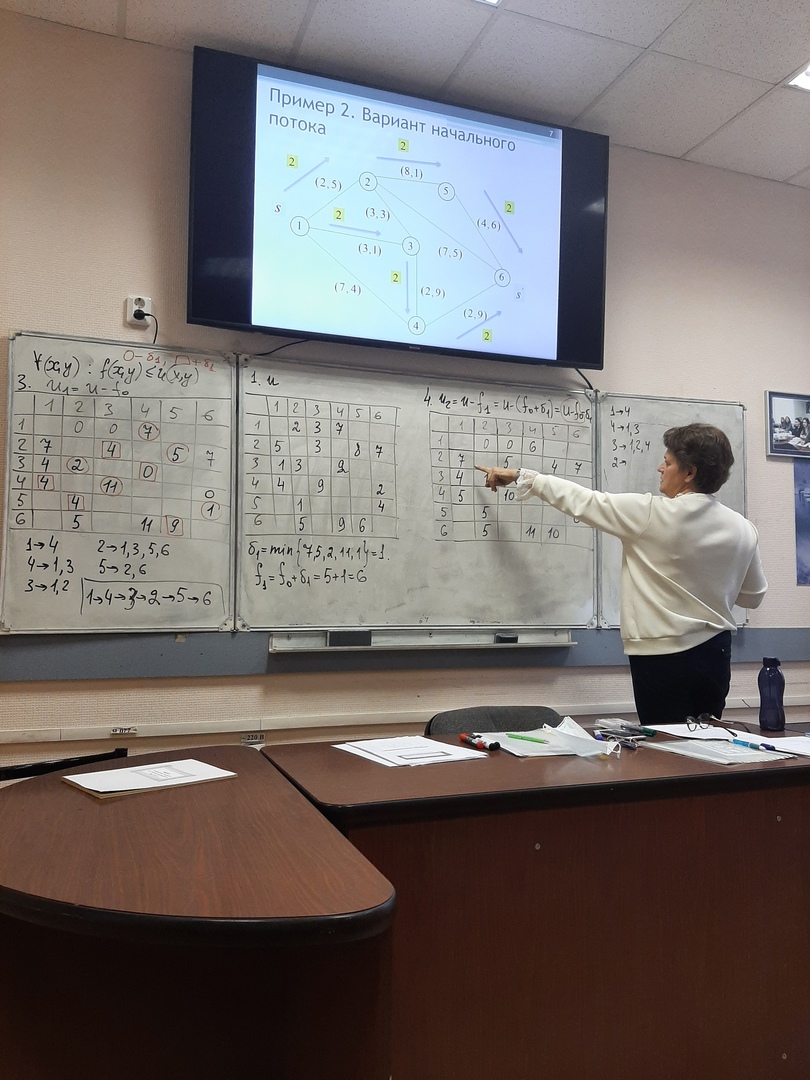 Пример 2. Вариант начального
потока
7
2
2
(8,1)
(2,5)
2
5
2
s
2
(3,3)
(4,6)
1
3
(3,1)
(7,5)
6
2
s
(7,4)
(2,9)
(2,9)
4
2
∀(x,y) : f(x,y) ≤ u(x,y)
3. u₁ = u - f₀
1 2 3 4 5 6
1 0 0 7
2 7 4 5 7
3 4 2 0
4 4 11 0
5 4 1
6 5 11 9
1→4 2→1,3,5,6
4→1,3 5→2,6
3→1,2 1→4→3→2→5→6
1. u
1 2 3 4 5 6
1 2 3 7
2 5 3 8 7
3 1 3 2
4 4 9 2
5 1 4
6 5 9 6
δ₁ = min{7,5,2,11,1} = 1.
f₁ = f₀+δ₁ = 5+1 = 6
4. u₂ = u - f₁ = u-(f₀+δ₁) =
1 2 3 4 5 6
1 0 0 6
2 7 5 4 7
3 4
4 5 10
5 5
6 5 11 10
1→4
4→1,3
3→1,2,4
2→
220 В